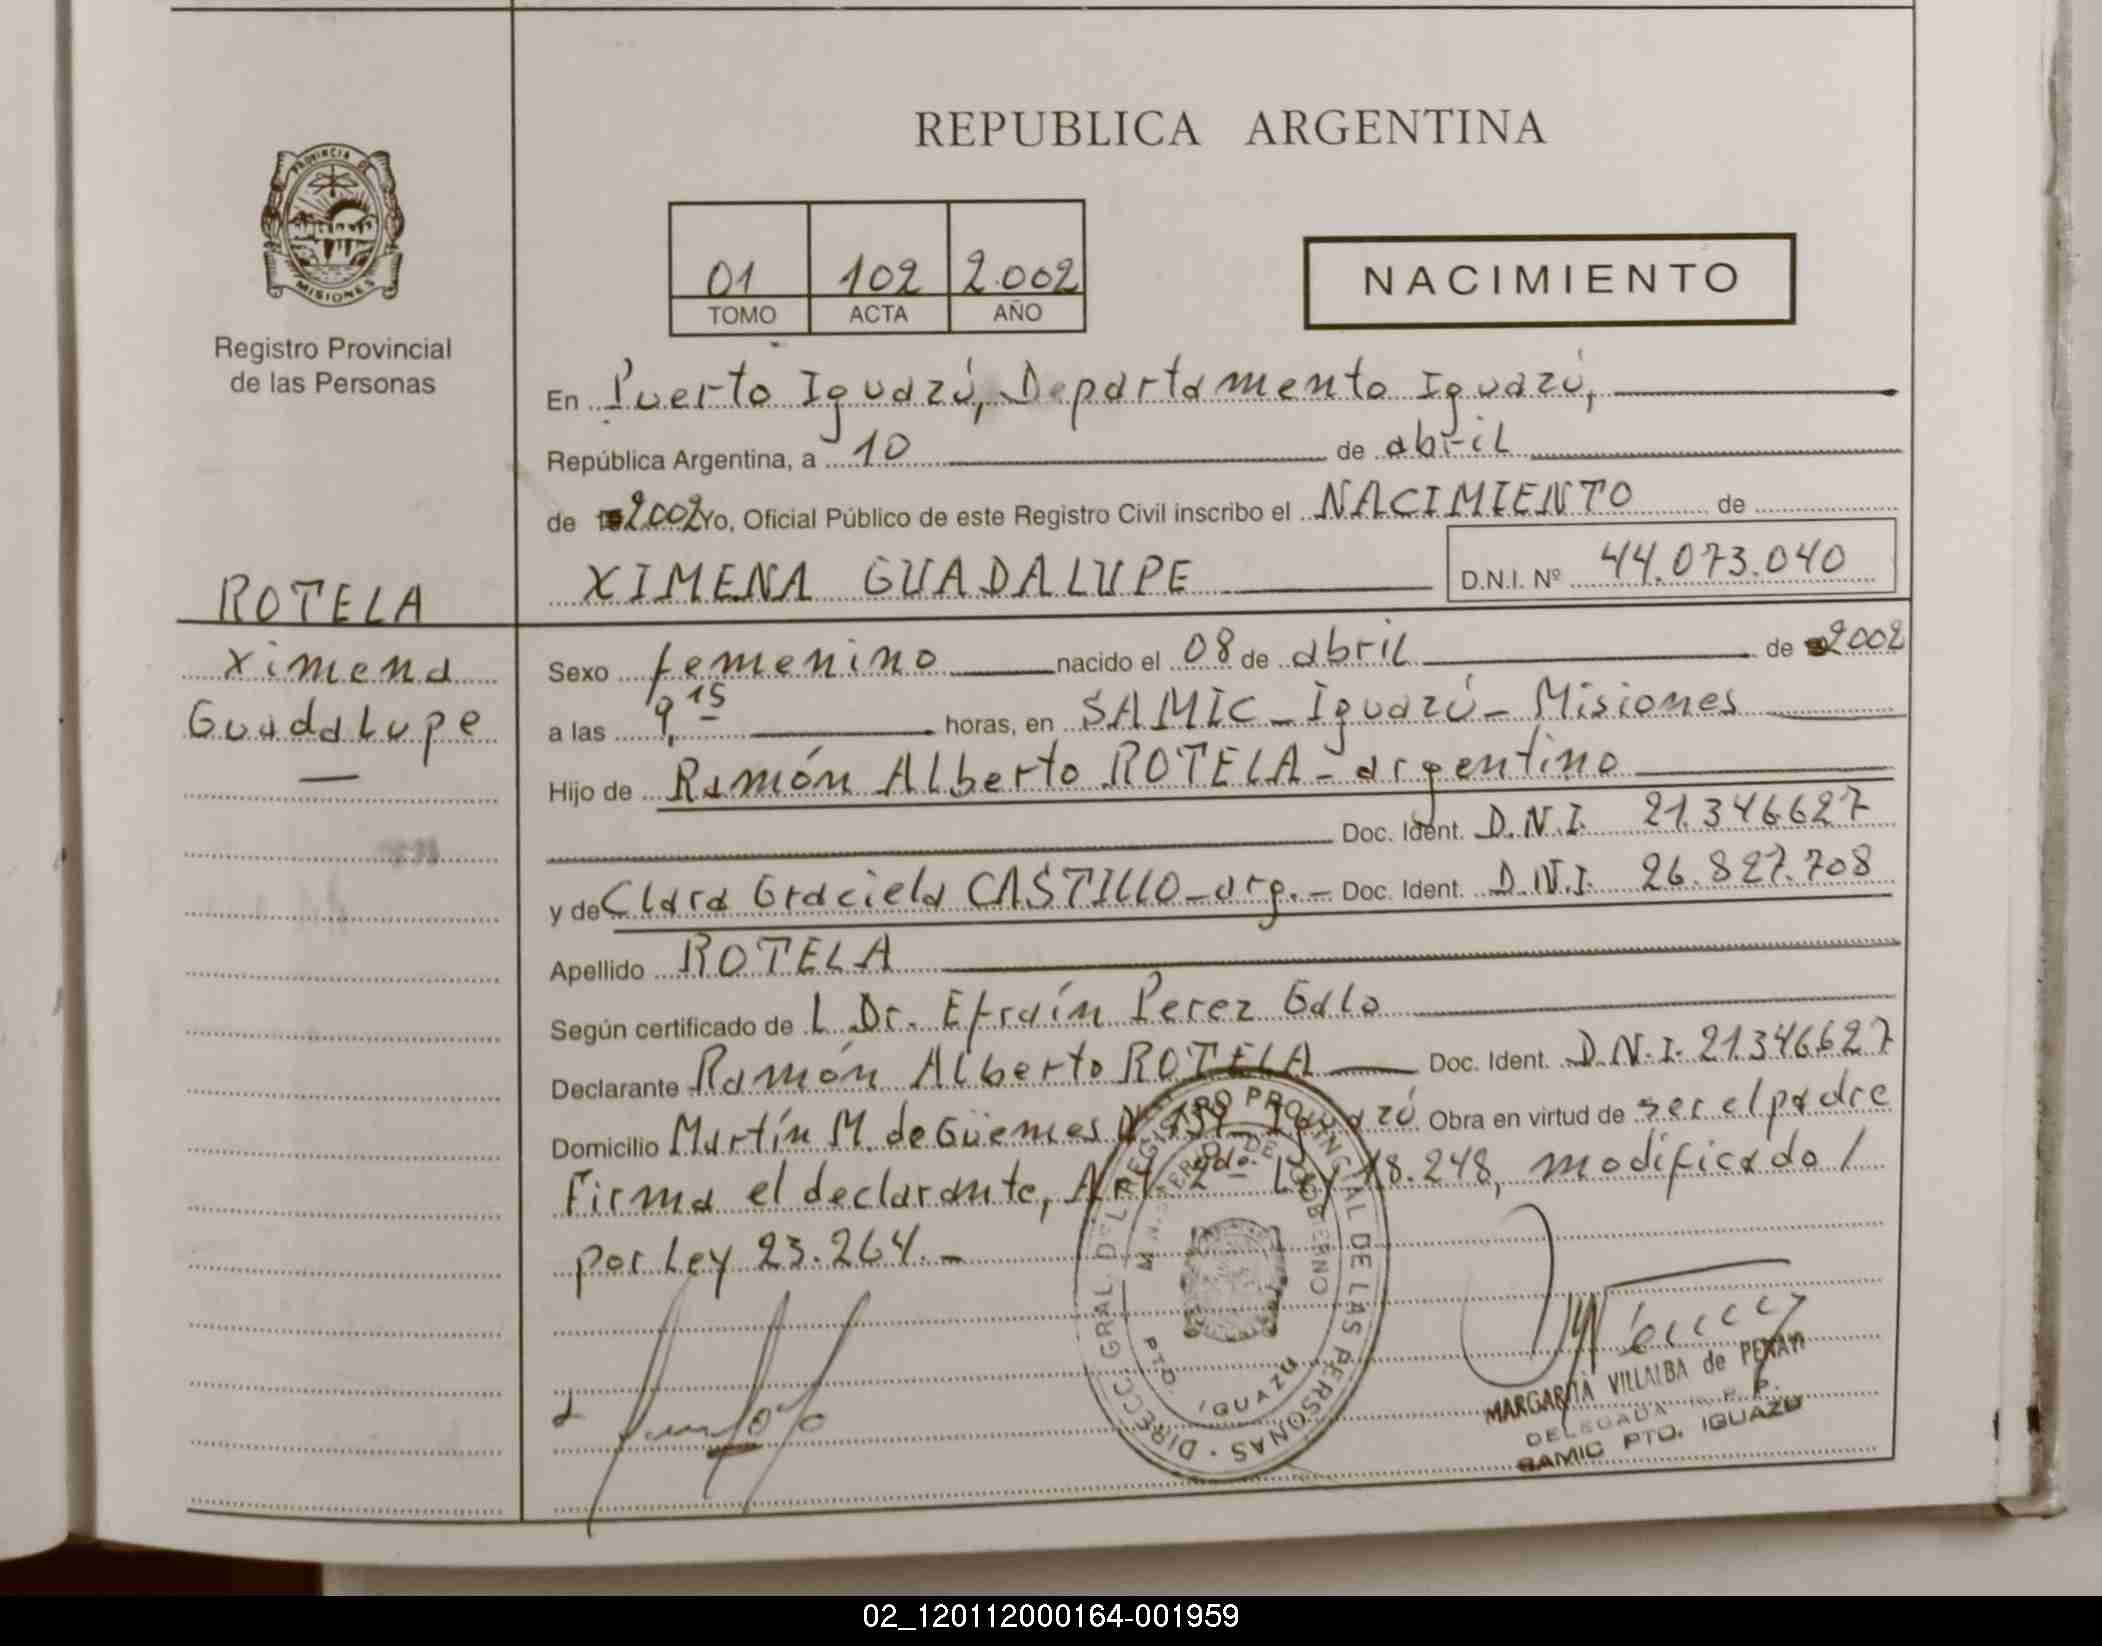 REPUBLICA ARGENTINA
PROVINCIA DE MISIONES
Registro Provincial
de las Personas
01 102 2.002
TOMO ACTA AÑO
NACIMIENTO
En Puerto Iguazú, Departamento Iguazú,
República Argentina, a 10 de abril
de 2002 Yo, Oficial Público de este Registro Civil inscribo el NACIMIENTO de
XIMENA GUADALUPE D.N.I. Nº 44.073.040
ROTELA
Ximena
Guadalupe
Sexo femenino nacido el 08 de abril de 2002
a las 9,15 horas, en SAMIC - Iguazú - Misiones
Hijo de Ramón Alberto ROTELA - argentino
Doc. Ident. D.N.I. 21.346627
y de Clara Graciela CASTILLO - arg. - Doc. Ident. D.N.I. 26.827.708
Apellido ROTELA
Según certificado de L Dr. Efraín Perez Galo
Declarante Ramón Alberto ROTELA Doc. Ident. D.N.I. 21.346627
Domicilio Martín M. de Güemes Obra en virtud de ser el padre
Firma el declarante, Art. 2do. Ley 18.248, modificado /
por Ley 23.264. -
DIRECC. GRAL. DEL REGISTRO PROVINCIAL DE LAS PERSONAS
MIN. DE GOBIERNO
PTO. IGUAZU
MARGARITA VILLALBA de
DELEGADA R. P. P.
SAMIC PTO. IGUAZU
02_120112000164-001959